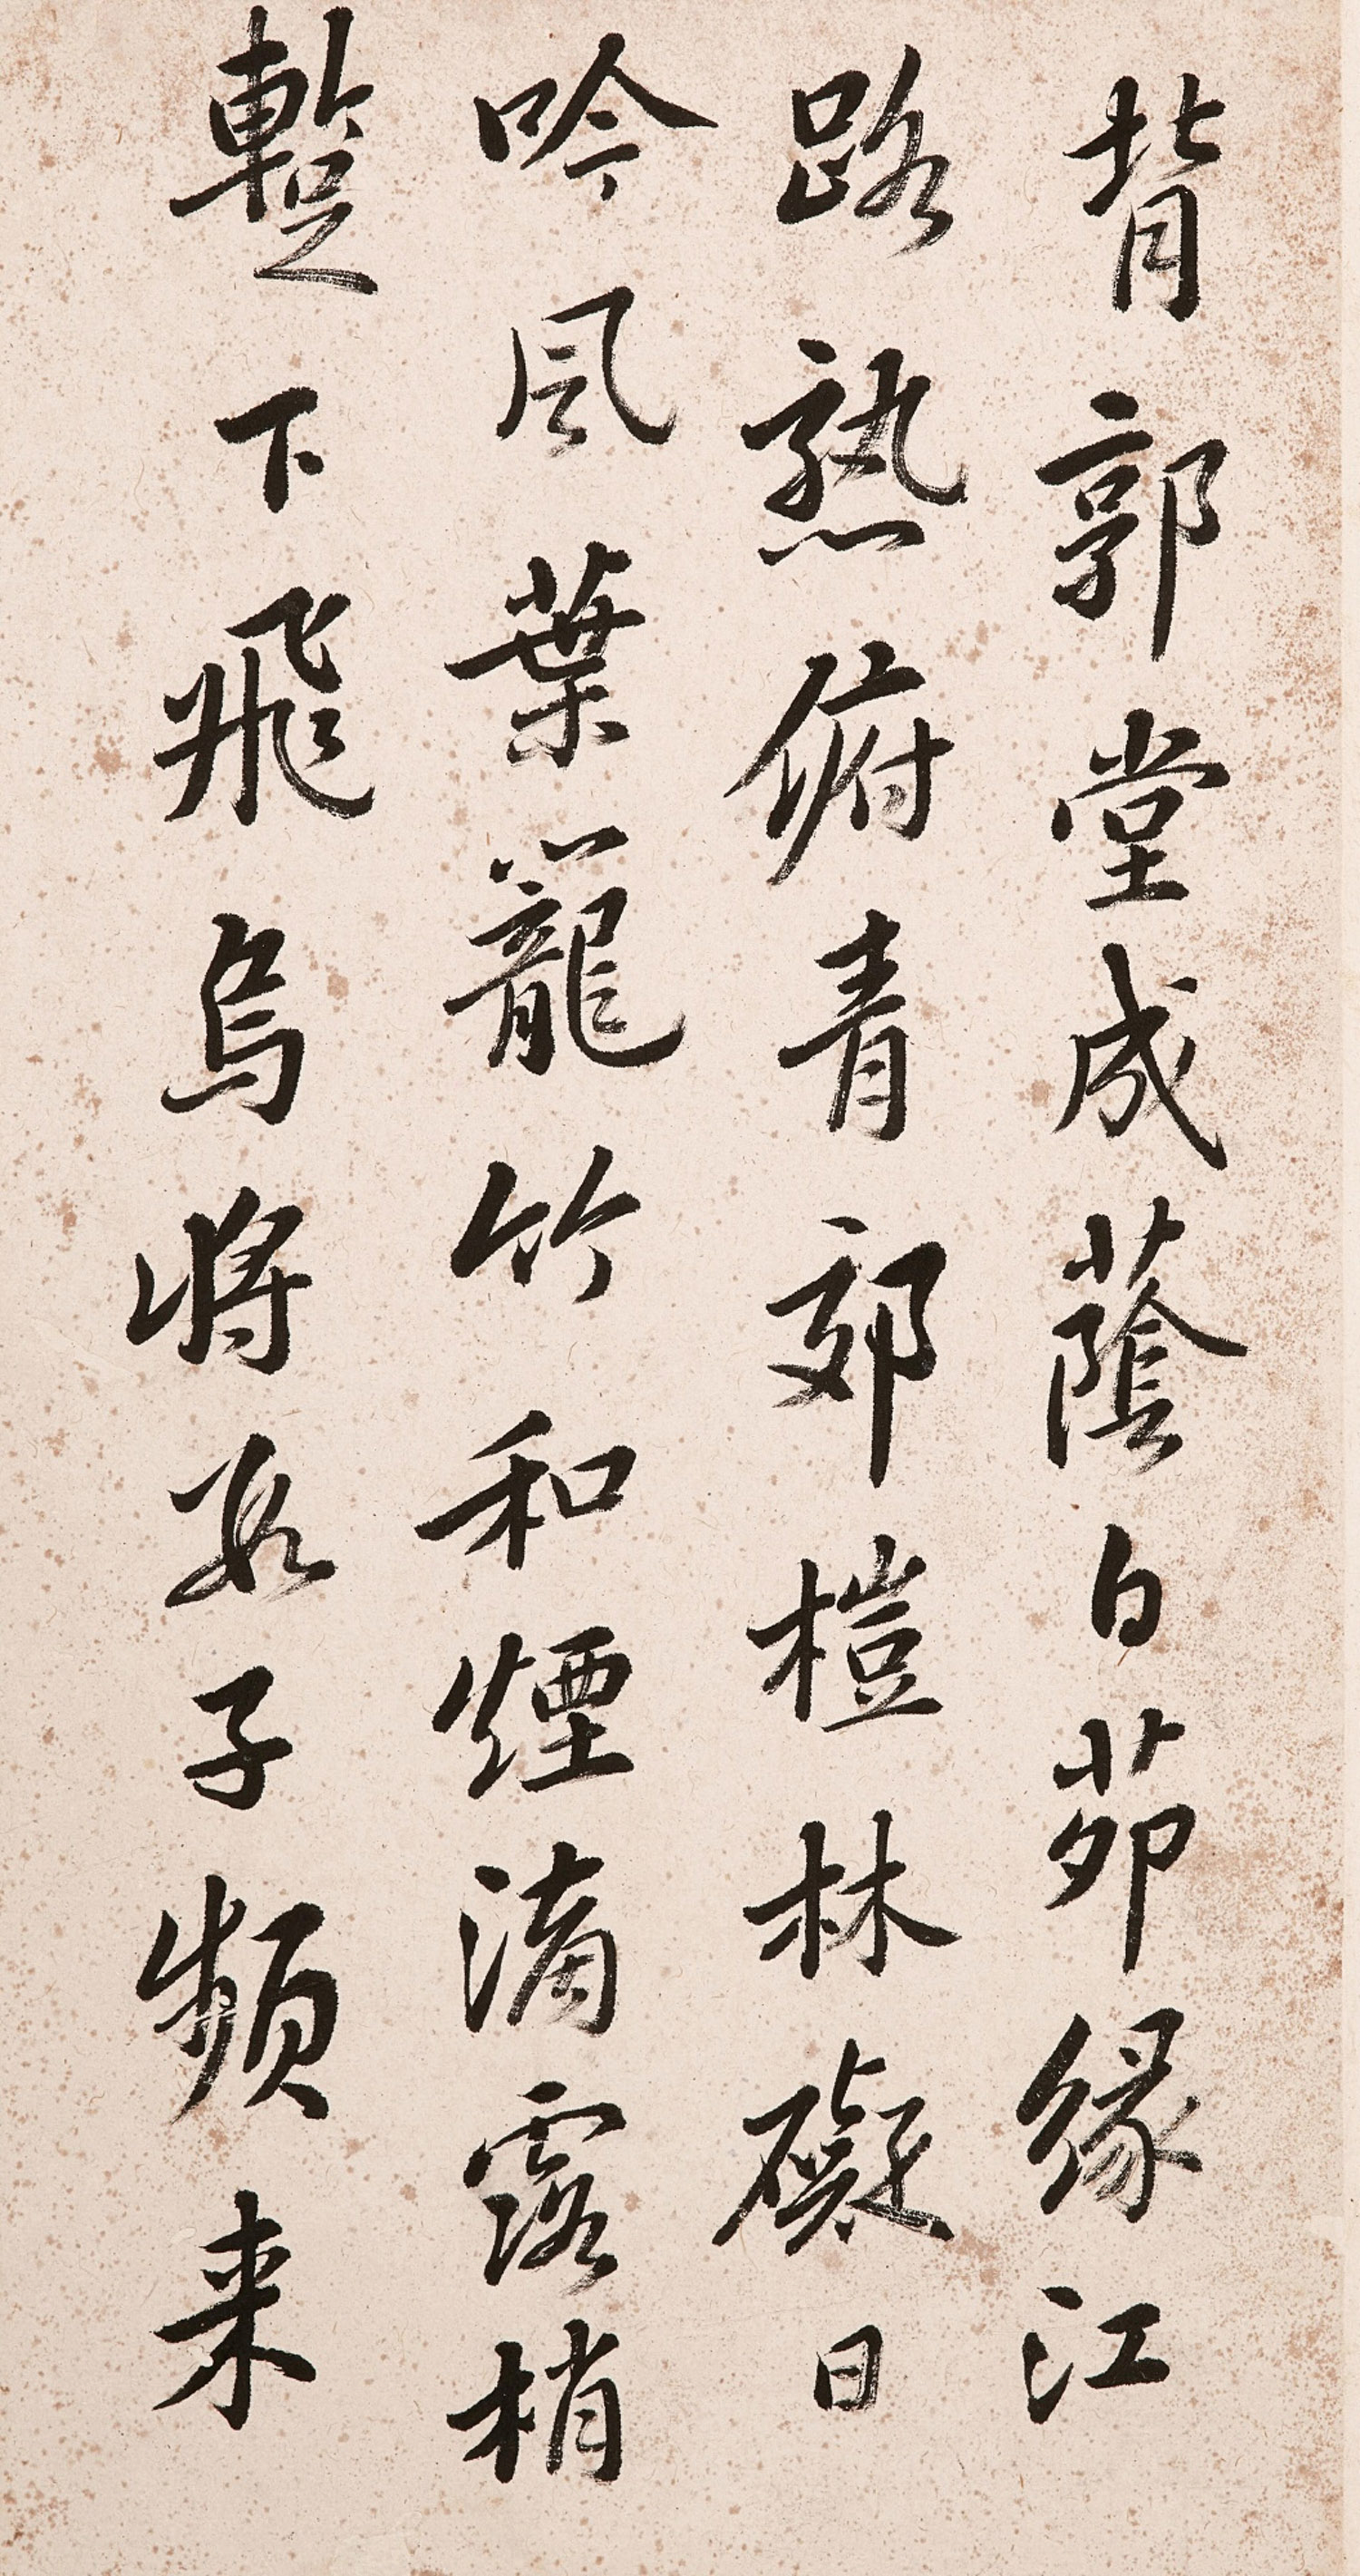 背郭堂成蔭白茆緣江
路熟俯青郊榿林礙日
吟風葉籠竹和煙滴露梢
蹔下飛烏將數子頻来